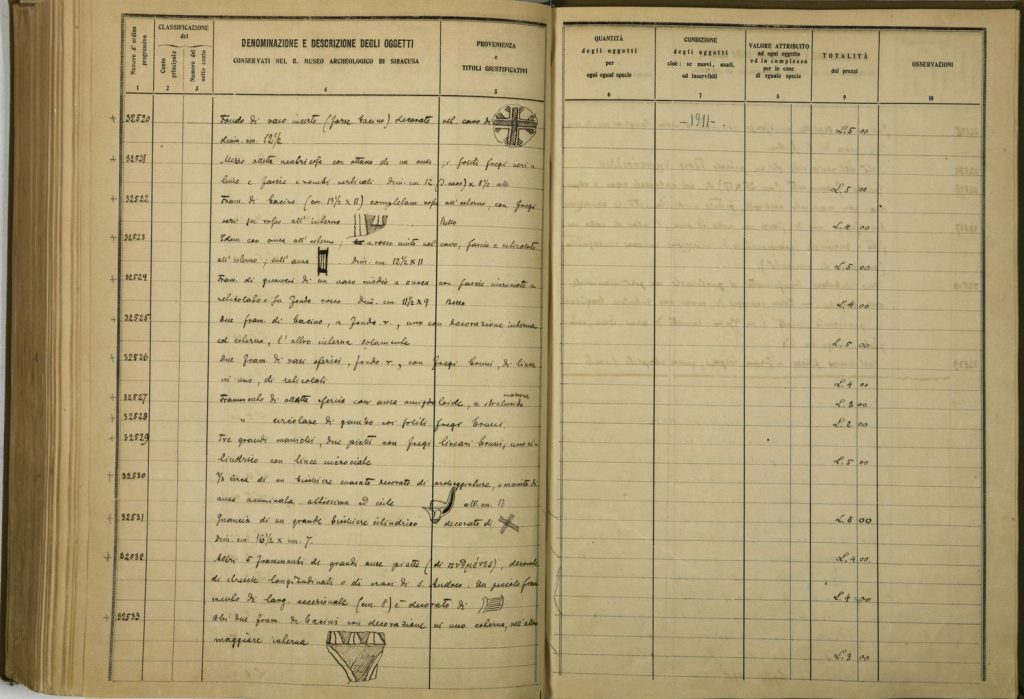 Numero d'ordine progressivo
CLASSIFICAZIONE del
Conto principale
Numero del sotto conto
DENOMINAZIONE E DESCRIZIONE DEGLI OGGETTI
CONSERVATI NEL R. MUSEO ARCHEOLOGICO DI SIRACUSA
PROVENIENZA
e
TITOLI GIUSTIFICATIVI
1 2 3 4 5
32520 Fondo di vaso incerto (forse bacino) decorato nel cavo di
diam. cm. 12 1/2
32521 Mezza con attacco di un ansa; soliti fregi neri a
linee e fascie e rombi verticali Dim. cm. 12 (D. cavo) x 8 1/2 alt.
32522 Fram. di bacino (cm. 13 1/2 x 11) completam. rosso all'esterno, con fregi
neri su rosso all'interno Bello
32523 Idem con ansa all'esterno, a rosso unito nel cavo, fascie e reticolato
all'esterno, sull'ansa . Dim. cm. 12 1/2 x 11
32524 Fram. di guancia di un vaso medio a zucca con fascie
reticolato su fondo rosso Dim. cm. 11 1/2 x 9 Bello
32525 Due fram. di bacino, a fondo r., uno con decorazione interna
ed esterna, l'altro interna solamente
32526 Due fram. di vasi sferici, fondo r., con fregi bruni, di linee
in uno, di reticolati
32527 Frammento di sferica con ansa marrone
32528 " di gambo coi soliti fregi bruni.
32529 Tre grandi manichi, due piatti con fregi lineari bruni, uno ci-
lindrico con linee
32530 di un bicchiere svasato decorato di e munito di
ansa acuminata altissima ed esile alt. cm. 13
32531 Guancia di un grande bicchiere cilindrico decorato di
Dim. cm. 16 1/2 x cm. 7.
32532 Altri 5 frammenti di grandi anse piatte (di ), decorate
di longitudinali o di croci di S. Andrea. Un piccolo fram-
mento di lung. eccezionale (cm. 8) è decorato di
32533 Altri due fram. di bacini con decorazione in uno esterna, nell'altro
maggiore interna
QUANTITÀ
degli oggetti
per
ogni egual specie
CONDIZIONE
degli oggetti
cioè: se nuovi, usati,
od inservibili
VALORE ATTRIBUITO
ad ogni oggetto
ed in complesso
per le cose
di eguale specie
TOTALITÀ
dei prezzi
OSSERVAZIONI
6 7 8 9 10
-1911-.
L. 5 00
L. 5 00
L. 4 00
L. 5 00
L. 4 00
L. 5 00
L. 4 00
L. 3 00
L. 2 00
L. 5 00
L. 8 00
L. 4 00
L. 4 00
L. 3 00